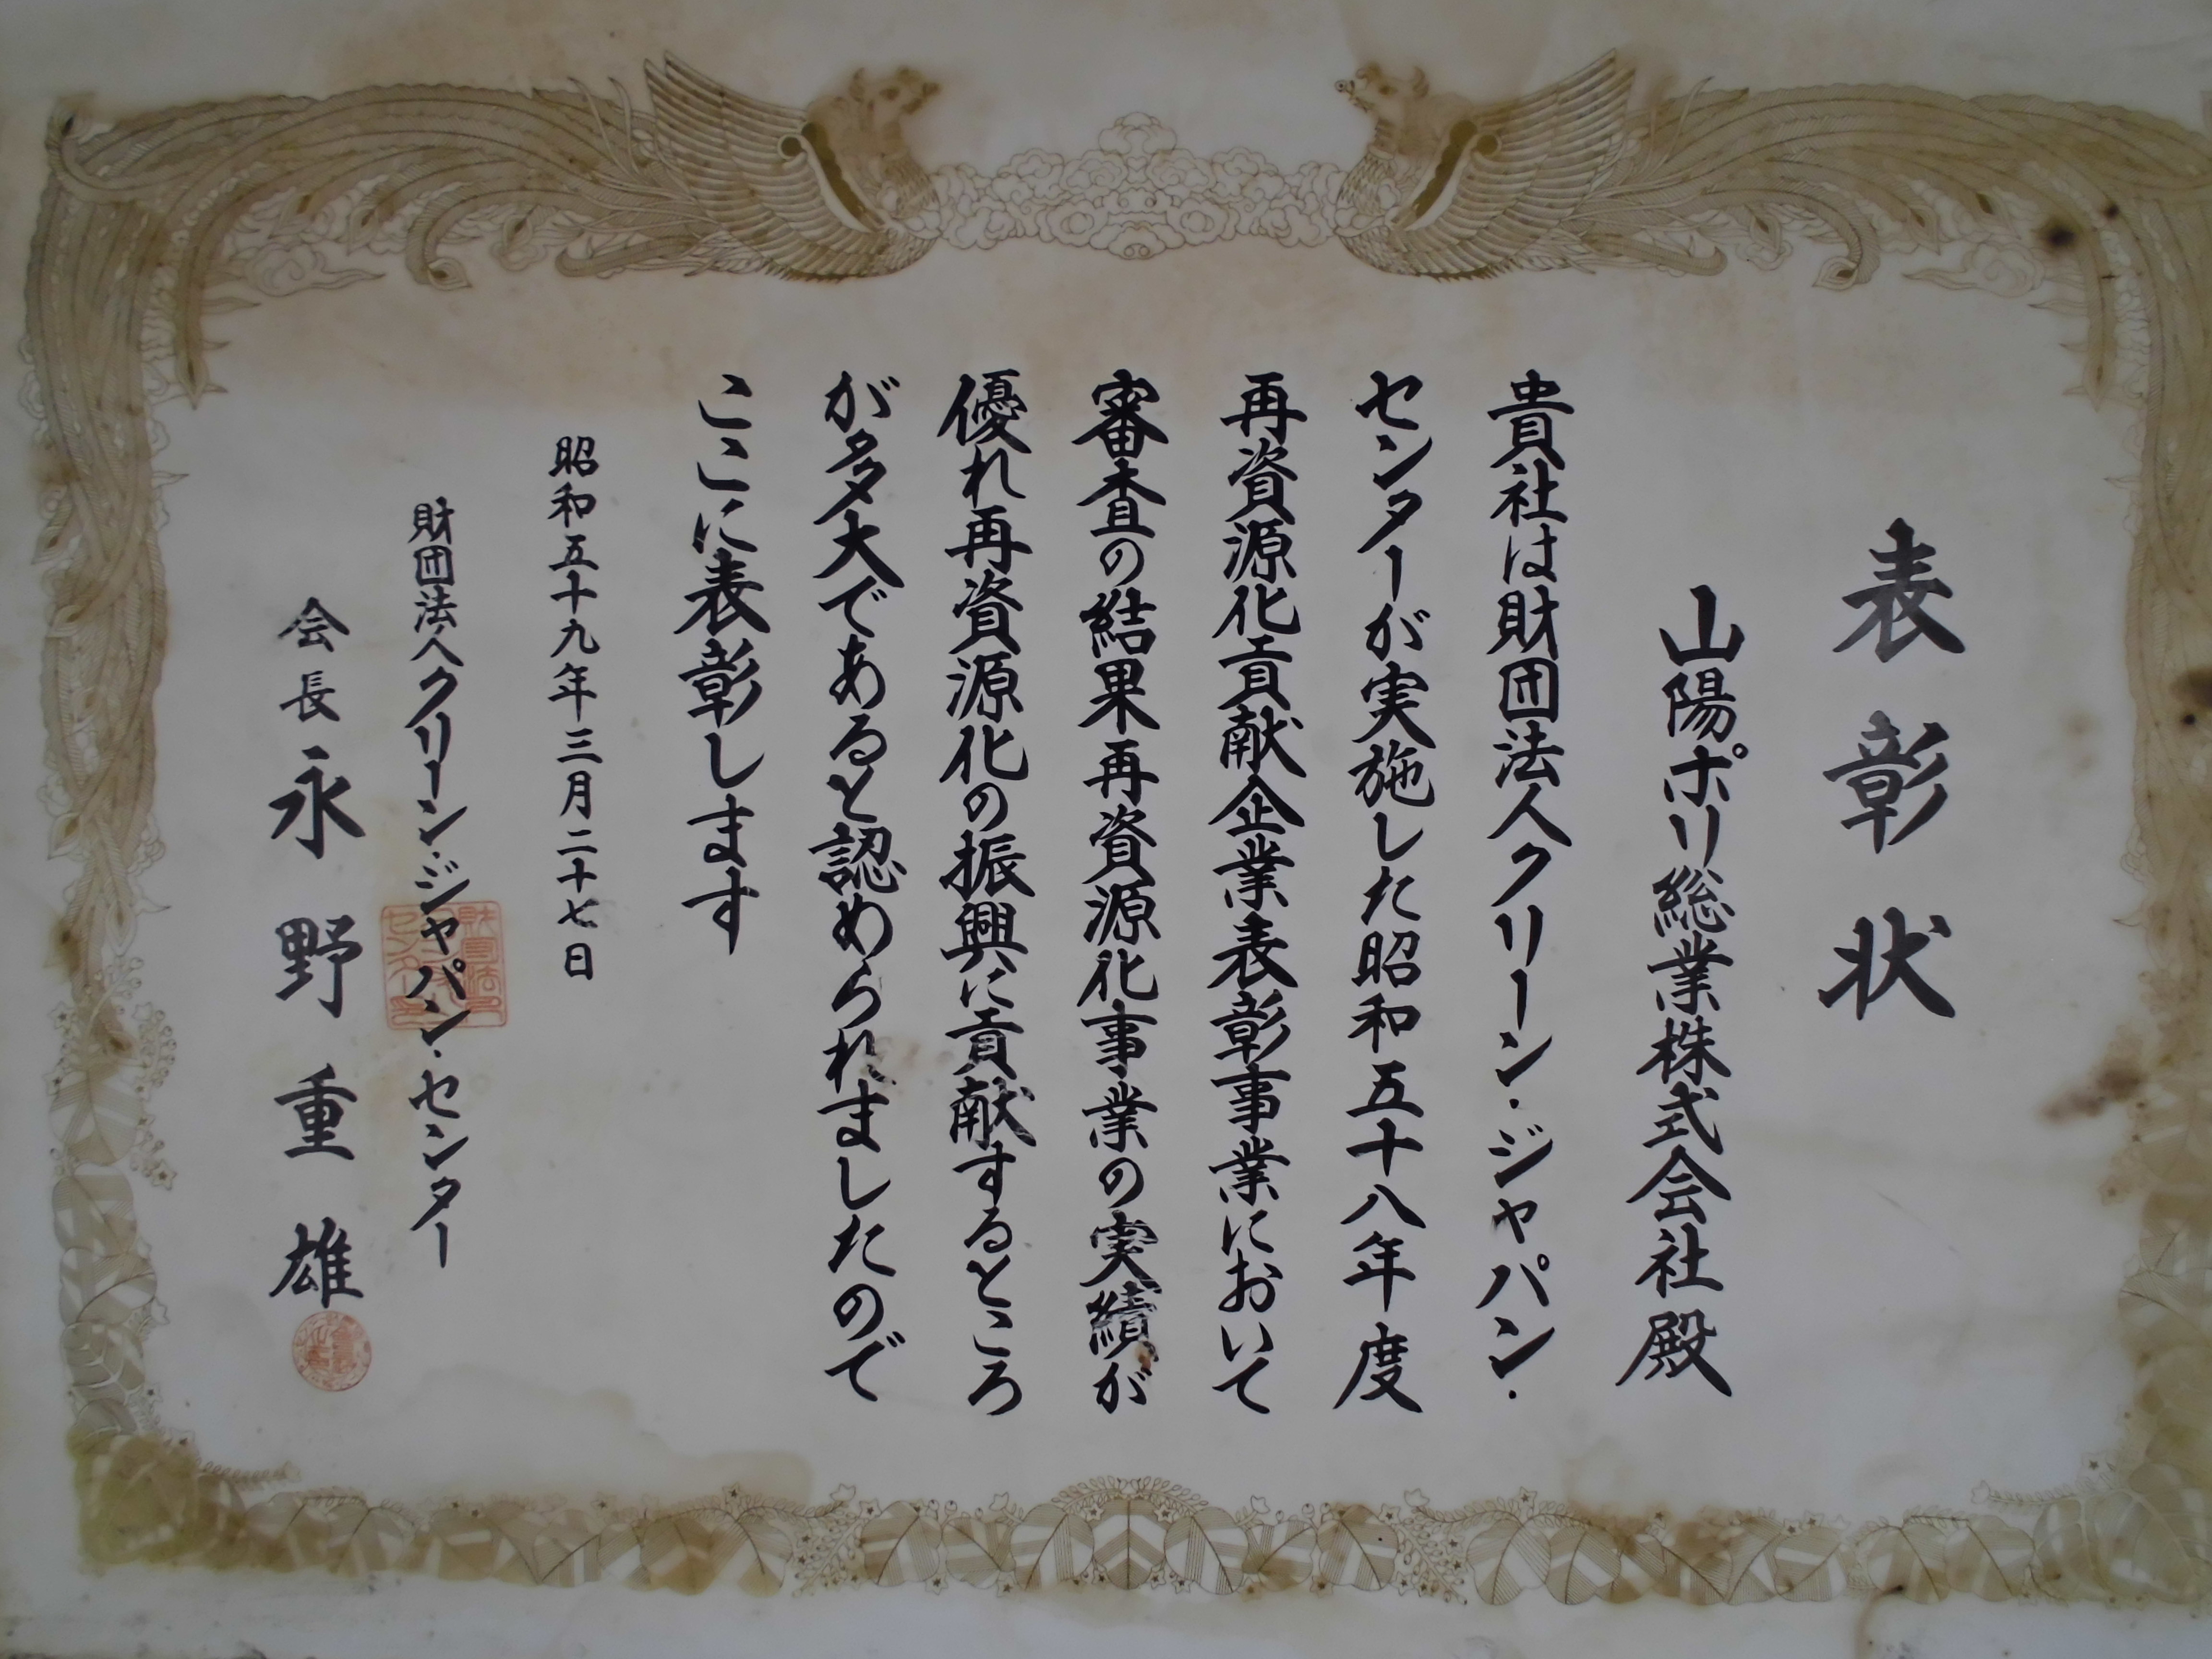 表彰状
山陽ポリ総業株式会社殿
貴社は財団法人クリーン・ジャパン・
センターが実施した昭和五十八年度
再資源化貢献企業表彰事業において
審査の結果再資源化事業の実績が
優れ再資源化の振興に貢献するところ
が多大であると認められましたので
ここに表彰します
昭和五十九年三月二十七日
財団法人クリーン・ジャパン・センター
会長永野重雄